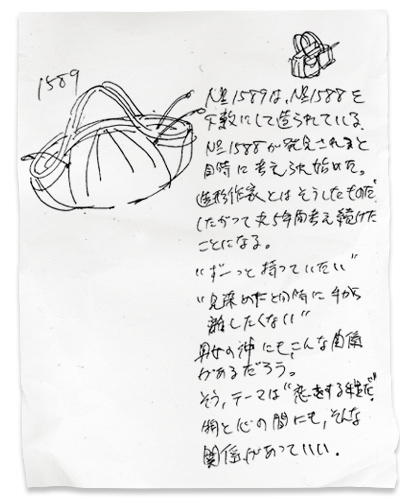 1589
No.1589は、No.1588を
下敷にして造られている。
No.1588が発見されると
同時に考えられ始めた。
造形作家とはそうしたものだ。
したがって丸5年間考え続けた
ことになる。
"ずーっと持っていたい"
"見染めたと同時に手から
離したくない"
男女の神にも、こんな関係
があるだろう。
そう,テーマは"恋をする鞄だ"
物と心の間にも,そんな
関係があっていい.